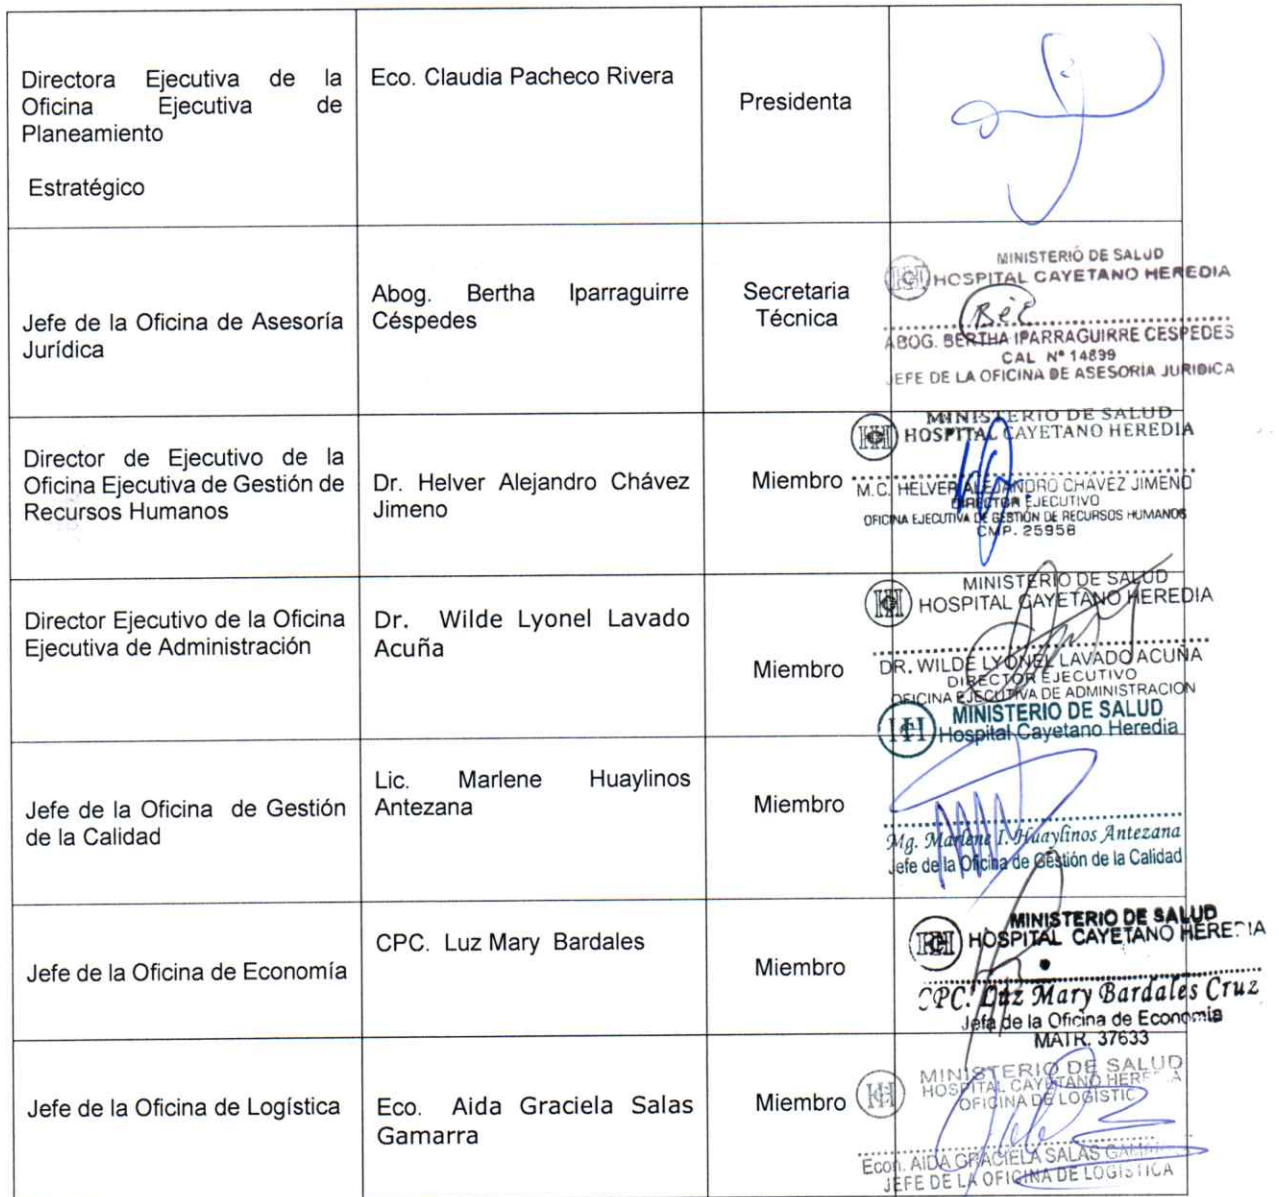 Directora Ejecutiva de la
Oficina Ejecutiva de
Planeamiento
Estratégico
Eco. Claudia Pacheco Rivera
Presidenta
Jefe de la Oficina de Asesoría
Jurídica
Abog. Bertha Iparraguirre
Céspedes
Secretaria
Técnica
MINISTERIO DE SALUD
HOSPITAL CAYETANO HEREDIA
ABOG. BERTHA IPARRAGUIRRE CESPEDES
CAL Nº 14899
JEFE DE LA OFICINA DE ASESORÍA JURIDICA
Director de Ejecutivo de la
Oficina Ejecutiva de Gestión de
Recursos Humanos
Dr. Helver Alejandro Chávez
Jimeno
Miembro
MINISTERIO DE SALUD
HOSPITAL CAYETANO HEREDIA
M.C. HELVER ALEJANDRO CHAVEZ JIMENO
DIRECTOR EJECUTIVO
OFICINA EJECUTIVA DE GESTIÓN DE RECURSOS HUMANOS
CMP. 25958
Director Ejecutivo de la Oficina
Ejecutiva de Administración
Dr. Wilde Lyonel Lavado
Acuña
Miembro
MINISTERIO DE SALUD
HOSPITAL CAYETANO HEREDIA
DR. WILDE LYONEL LAVADO ACUÑA
DIRECTOR EJECUTIVO
OFICINA EJECUTIVA DE ADMINISTRACION
Jefe de la Oficina de Gestión
de la Calidad
Lic. Marlene Huaylinos
Antezana
Miembro
MINISTERIO DE SALUD
Hospital Cayetano Heredia
Mg. Marlene I. Huaylinos Antezana
Jefe de la Oficina de Gestión de la Calidad
Jefe de la Oficina de Economía
CPC. Luz Mary Bardales
Miembro
MINISTERIO DE SALUD
HOSPITAL CAYETANO HEREDIA
CPC. Luz Mary Bardales Cruz
Jefa de la Oficina de Economía
MATR. 37633
Jefe de la Oficina de Logística
Eco. Aida Graciela Salas
Gamarra
Miembro
MINISTERIO DE SALUD
HOSPITAL CAYETANO HEREDIA
OFICINA DE LOGISTIC
Econ. AIDA GRACIELA SALAS GAMARRA
JEFE DE LA OFICINA DE LOGISTICA